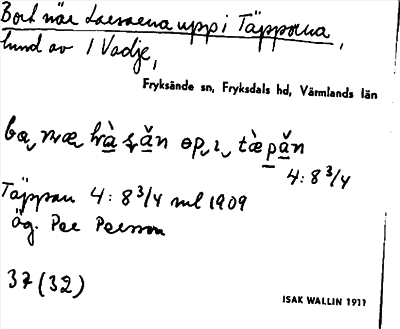 Bort när Larsarna uppi Täpporna,
hund av 1 Vadje,
Fryksände sn, Fryksdals hd, Värmlands län
4:8 3/4
Täppan 4:8 3/4 ml 1909
äg. Per Persson
37 (32)
ISAK WALLIN 1911